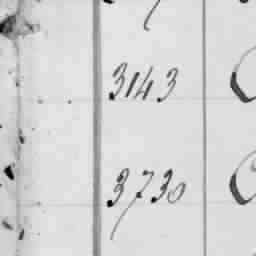 3143
3730